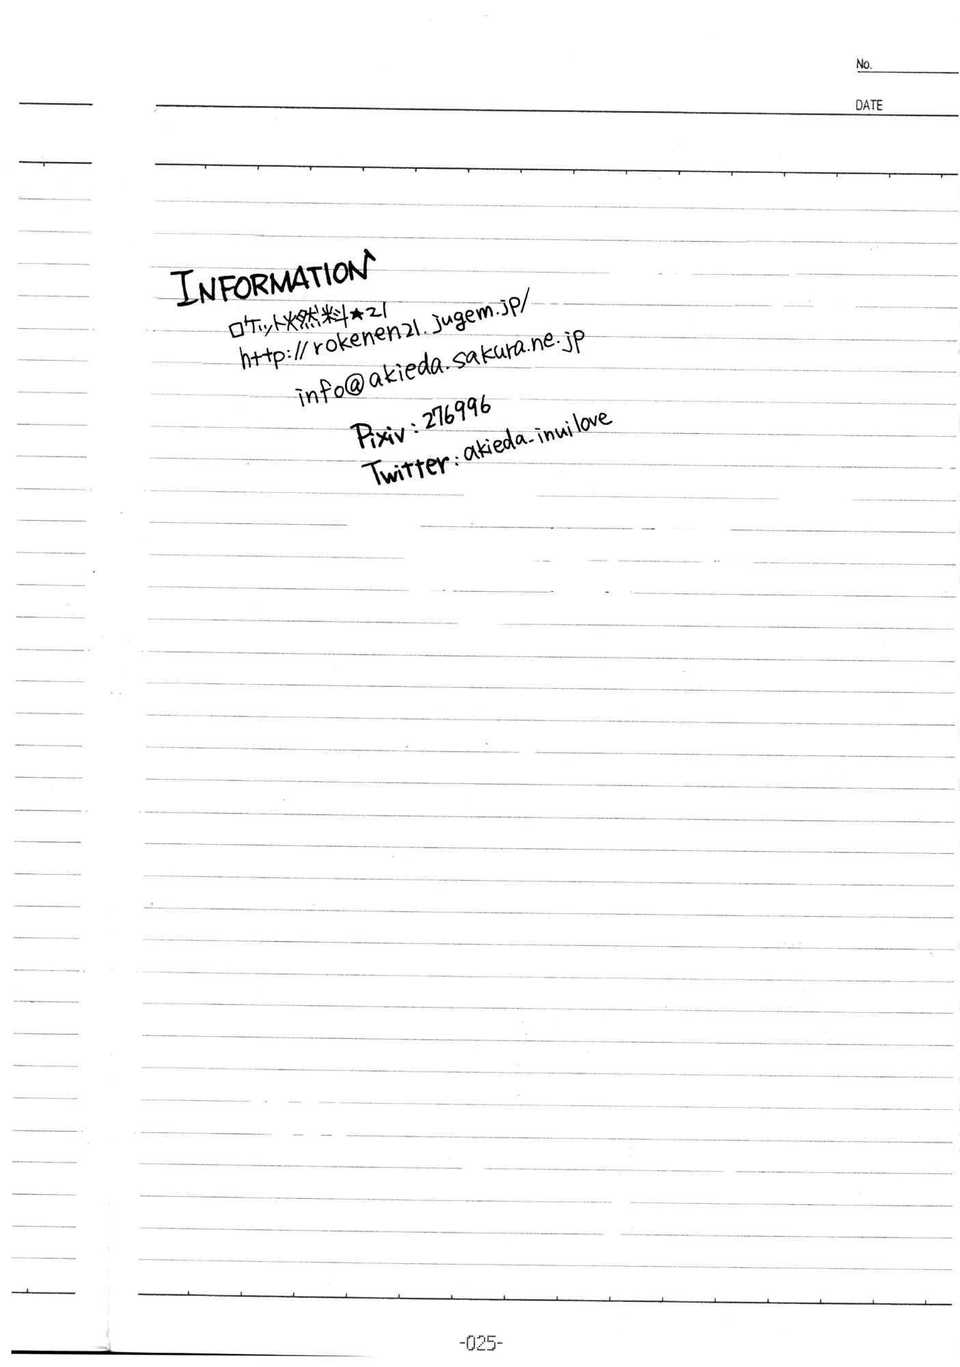 No.
DATE
INFORMATION
ロケット燃料★21
http://rokenen21.jugem.jp/
info@akieda.sakura.ne.jp
Pixiv:276996
Twitter:akieda_inuilove
-025-